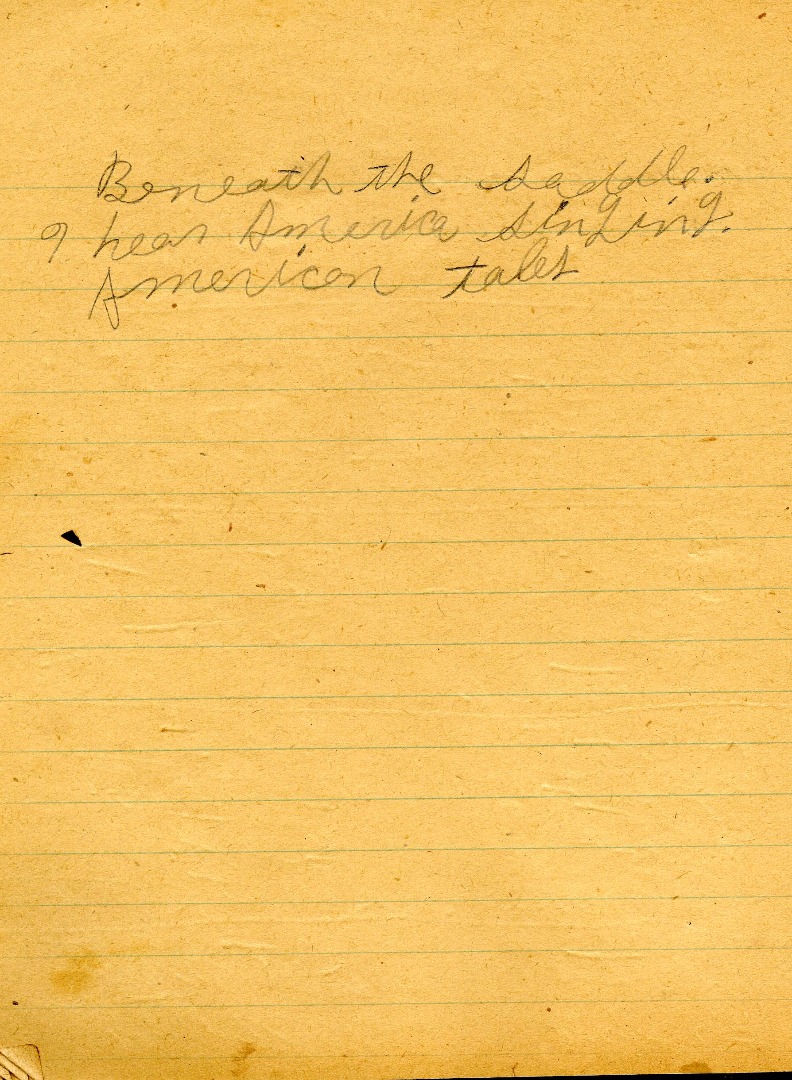 Beneath the saddle.
I hear America singing.
American tales